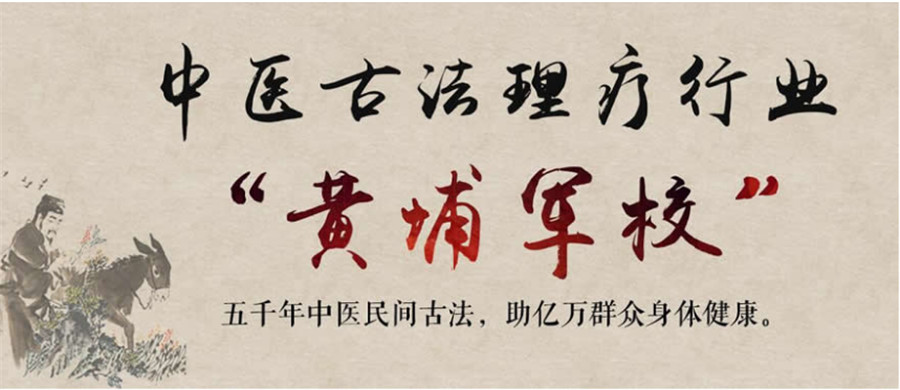 中医古法理疗行业
“黄埔军校”
五千年中医民间古法，助亿万群众身体健康。